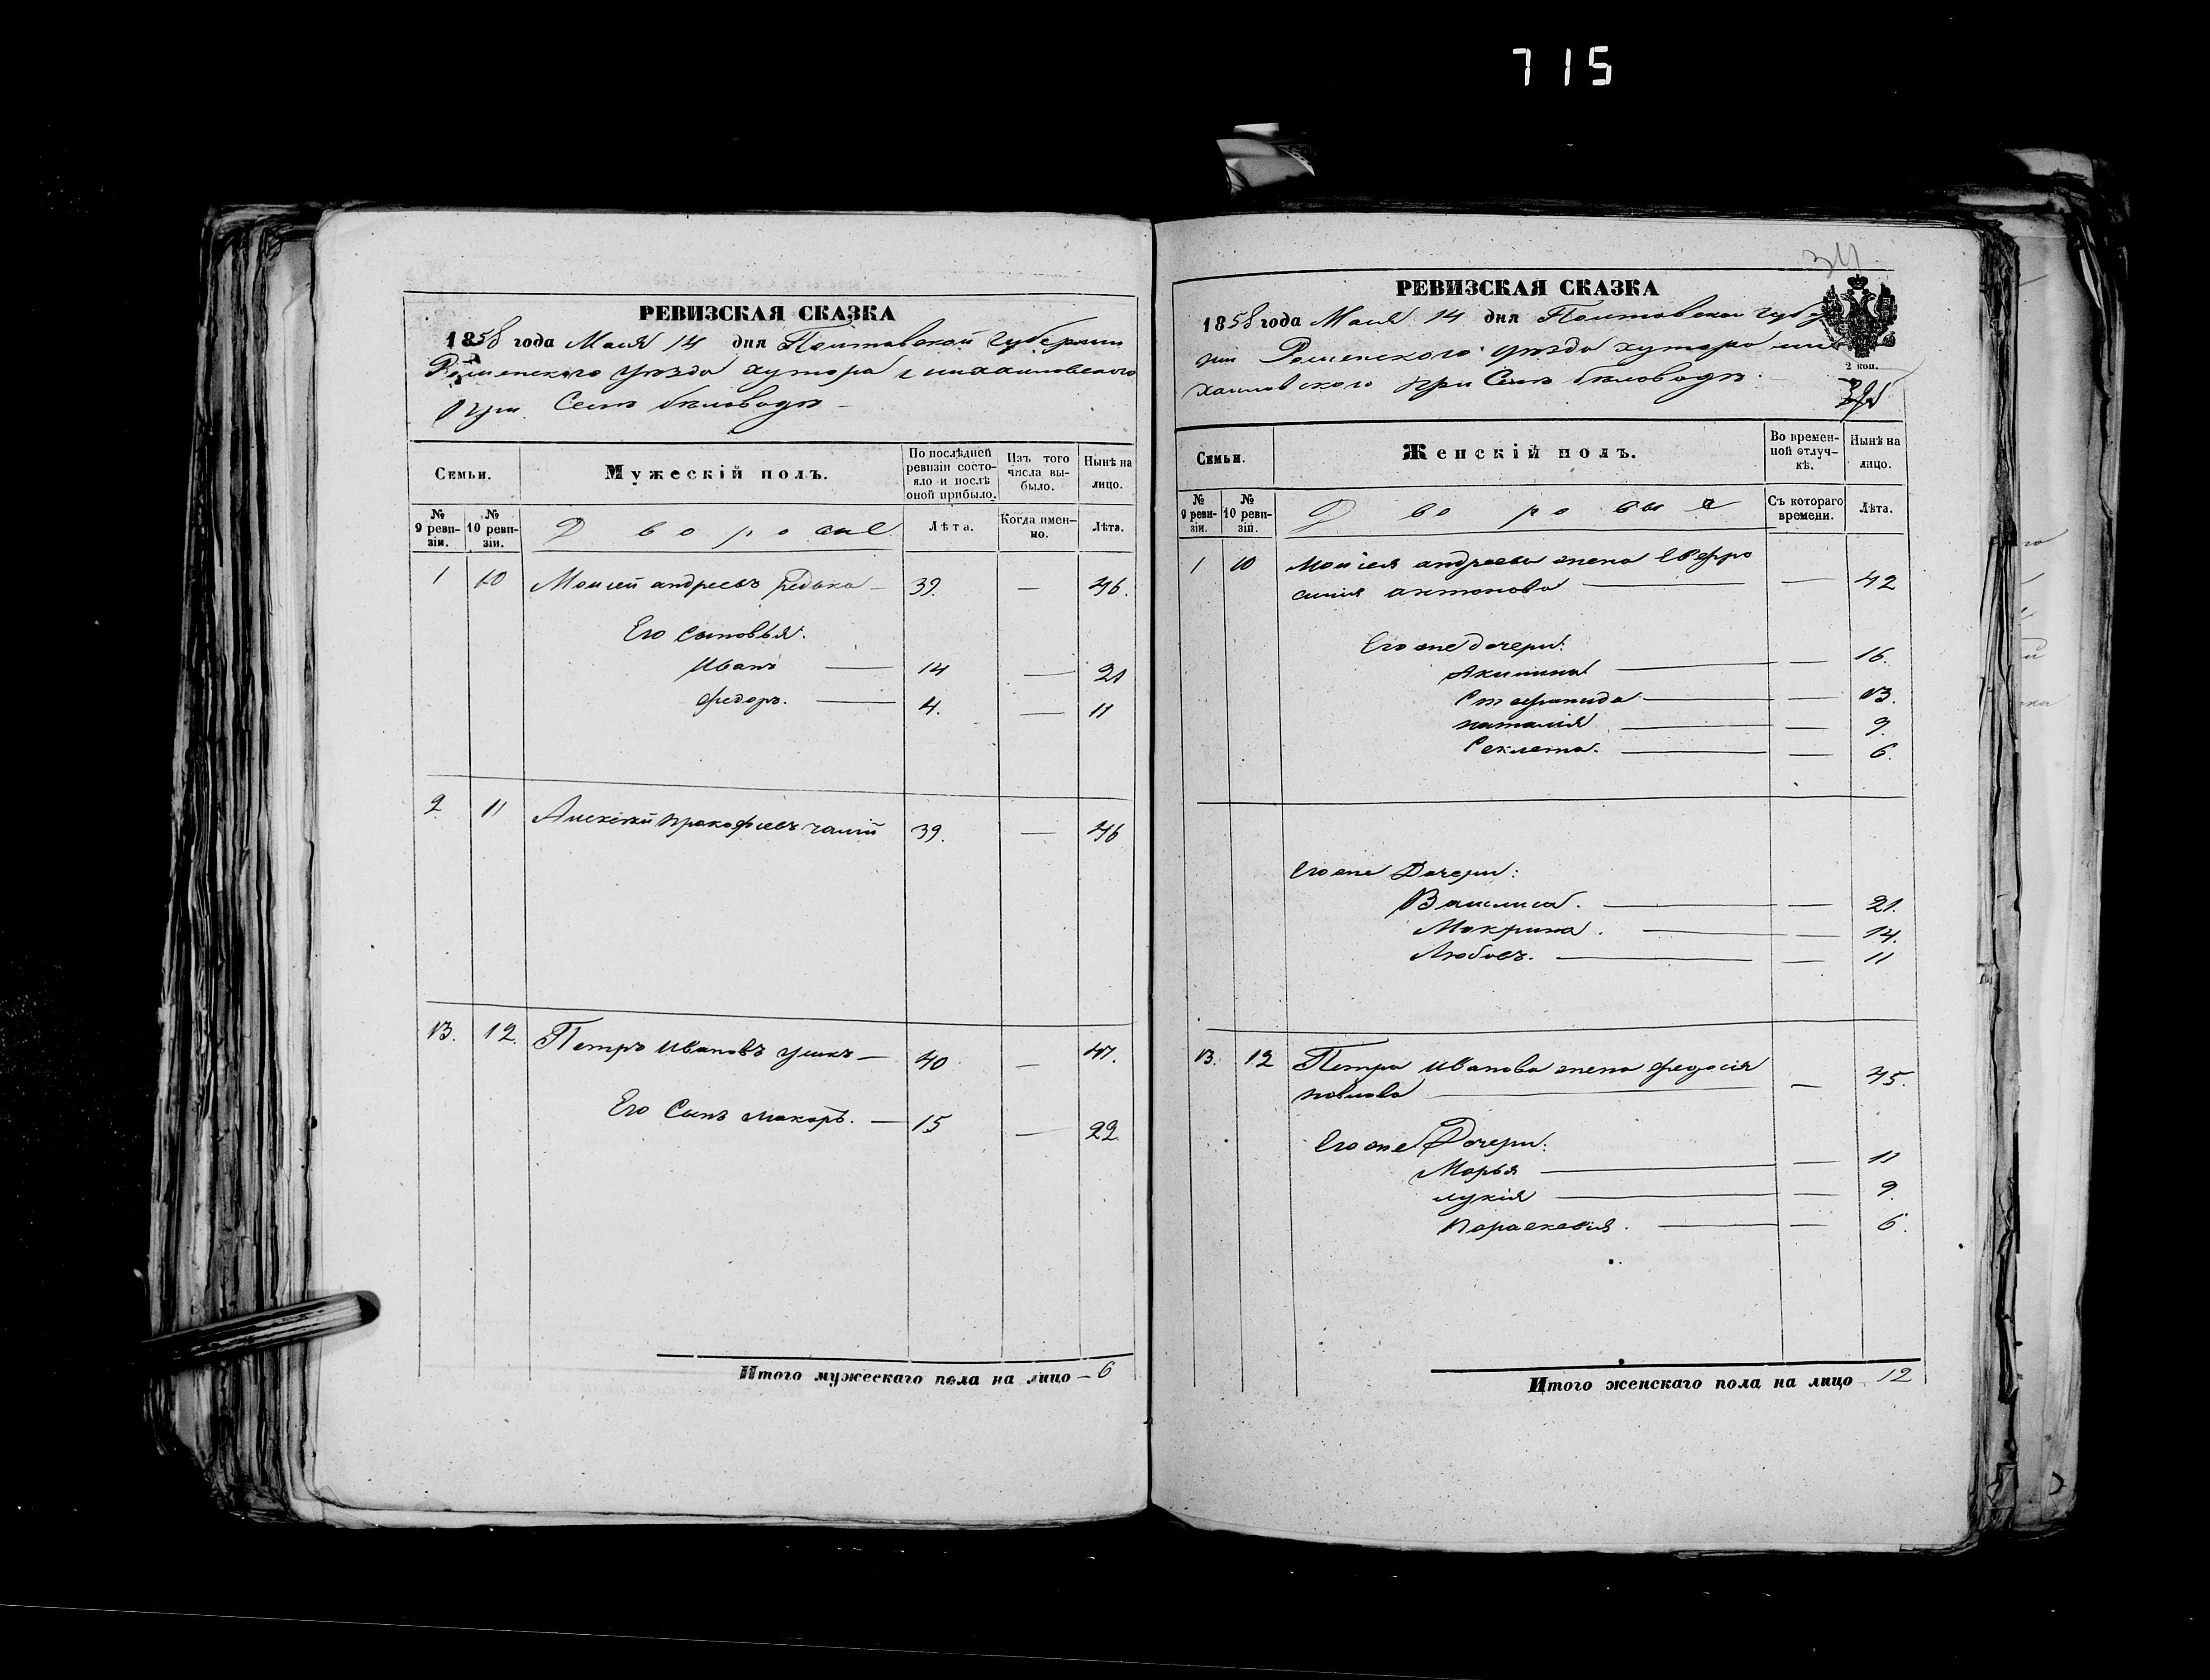 715
РЕВИЗСКАЯ СКАЗКА
1858 года Мая 14 дня Полтавской губернии
Роменского уезда хутора Михайловского
при Селе беловодъ
Семьи.
Мужескій полъ.
По послѣдней ревизіи состояло и послѣ оной прибыло.
Изъ того числа выбыло.
Нынѣ на лицо.
№ 9 ревизіи.
№ 10 ревизіи.
Дворовые
Лѣта.
Когда именно.
Лѣта.
1 10 Моисей андреевъ редька — 39. — 46.
Его сыновья:
Иванъ — 14 — 21
федоръ. — 4. — 11
2 11 Алексѣй прокофиевъ 39. — 46
13. 12. Петръ Ивановъ — 40 — 47.
Его Сынъ макаръ. — 15 — 22.
Итого мужескаго пола на лицо — 6
34
РЕВИЗСКАЯ СКАЗКА
1858 года Мая 14 дня Полтавской губер
нии Роменского уезда хутора ми
хайловского при Селе беловодъ
2 коп.
Семьи.
Женскій полъ.
Во временной отлучкѣ.
Нынѣ на лицо.
№ 9 ревизіи.
№ 10 ревизіи.
Дворовые
Съ котораго времени.
Лѣта.
1 10 Моисея андреева жена Евфро
синия антонова — — 42
Его же дочери:
Акилина — — 16.
Стефанида — — 13.
наталія — — 9.
Секлета. — — 6.
Его же Дочери:
Василиса. — — 21.
Макрина. — — 14.
Любовъ. — — 11
13. 12 Петра Иванова жена федосія
павлова — — 45.
Его же Дочери:
Марья — — 11
лукія — — 9.
Параскевия. — — 6.
Итого женскаго пола на лицо 12